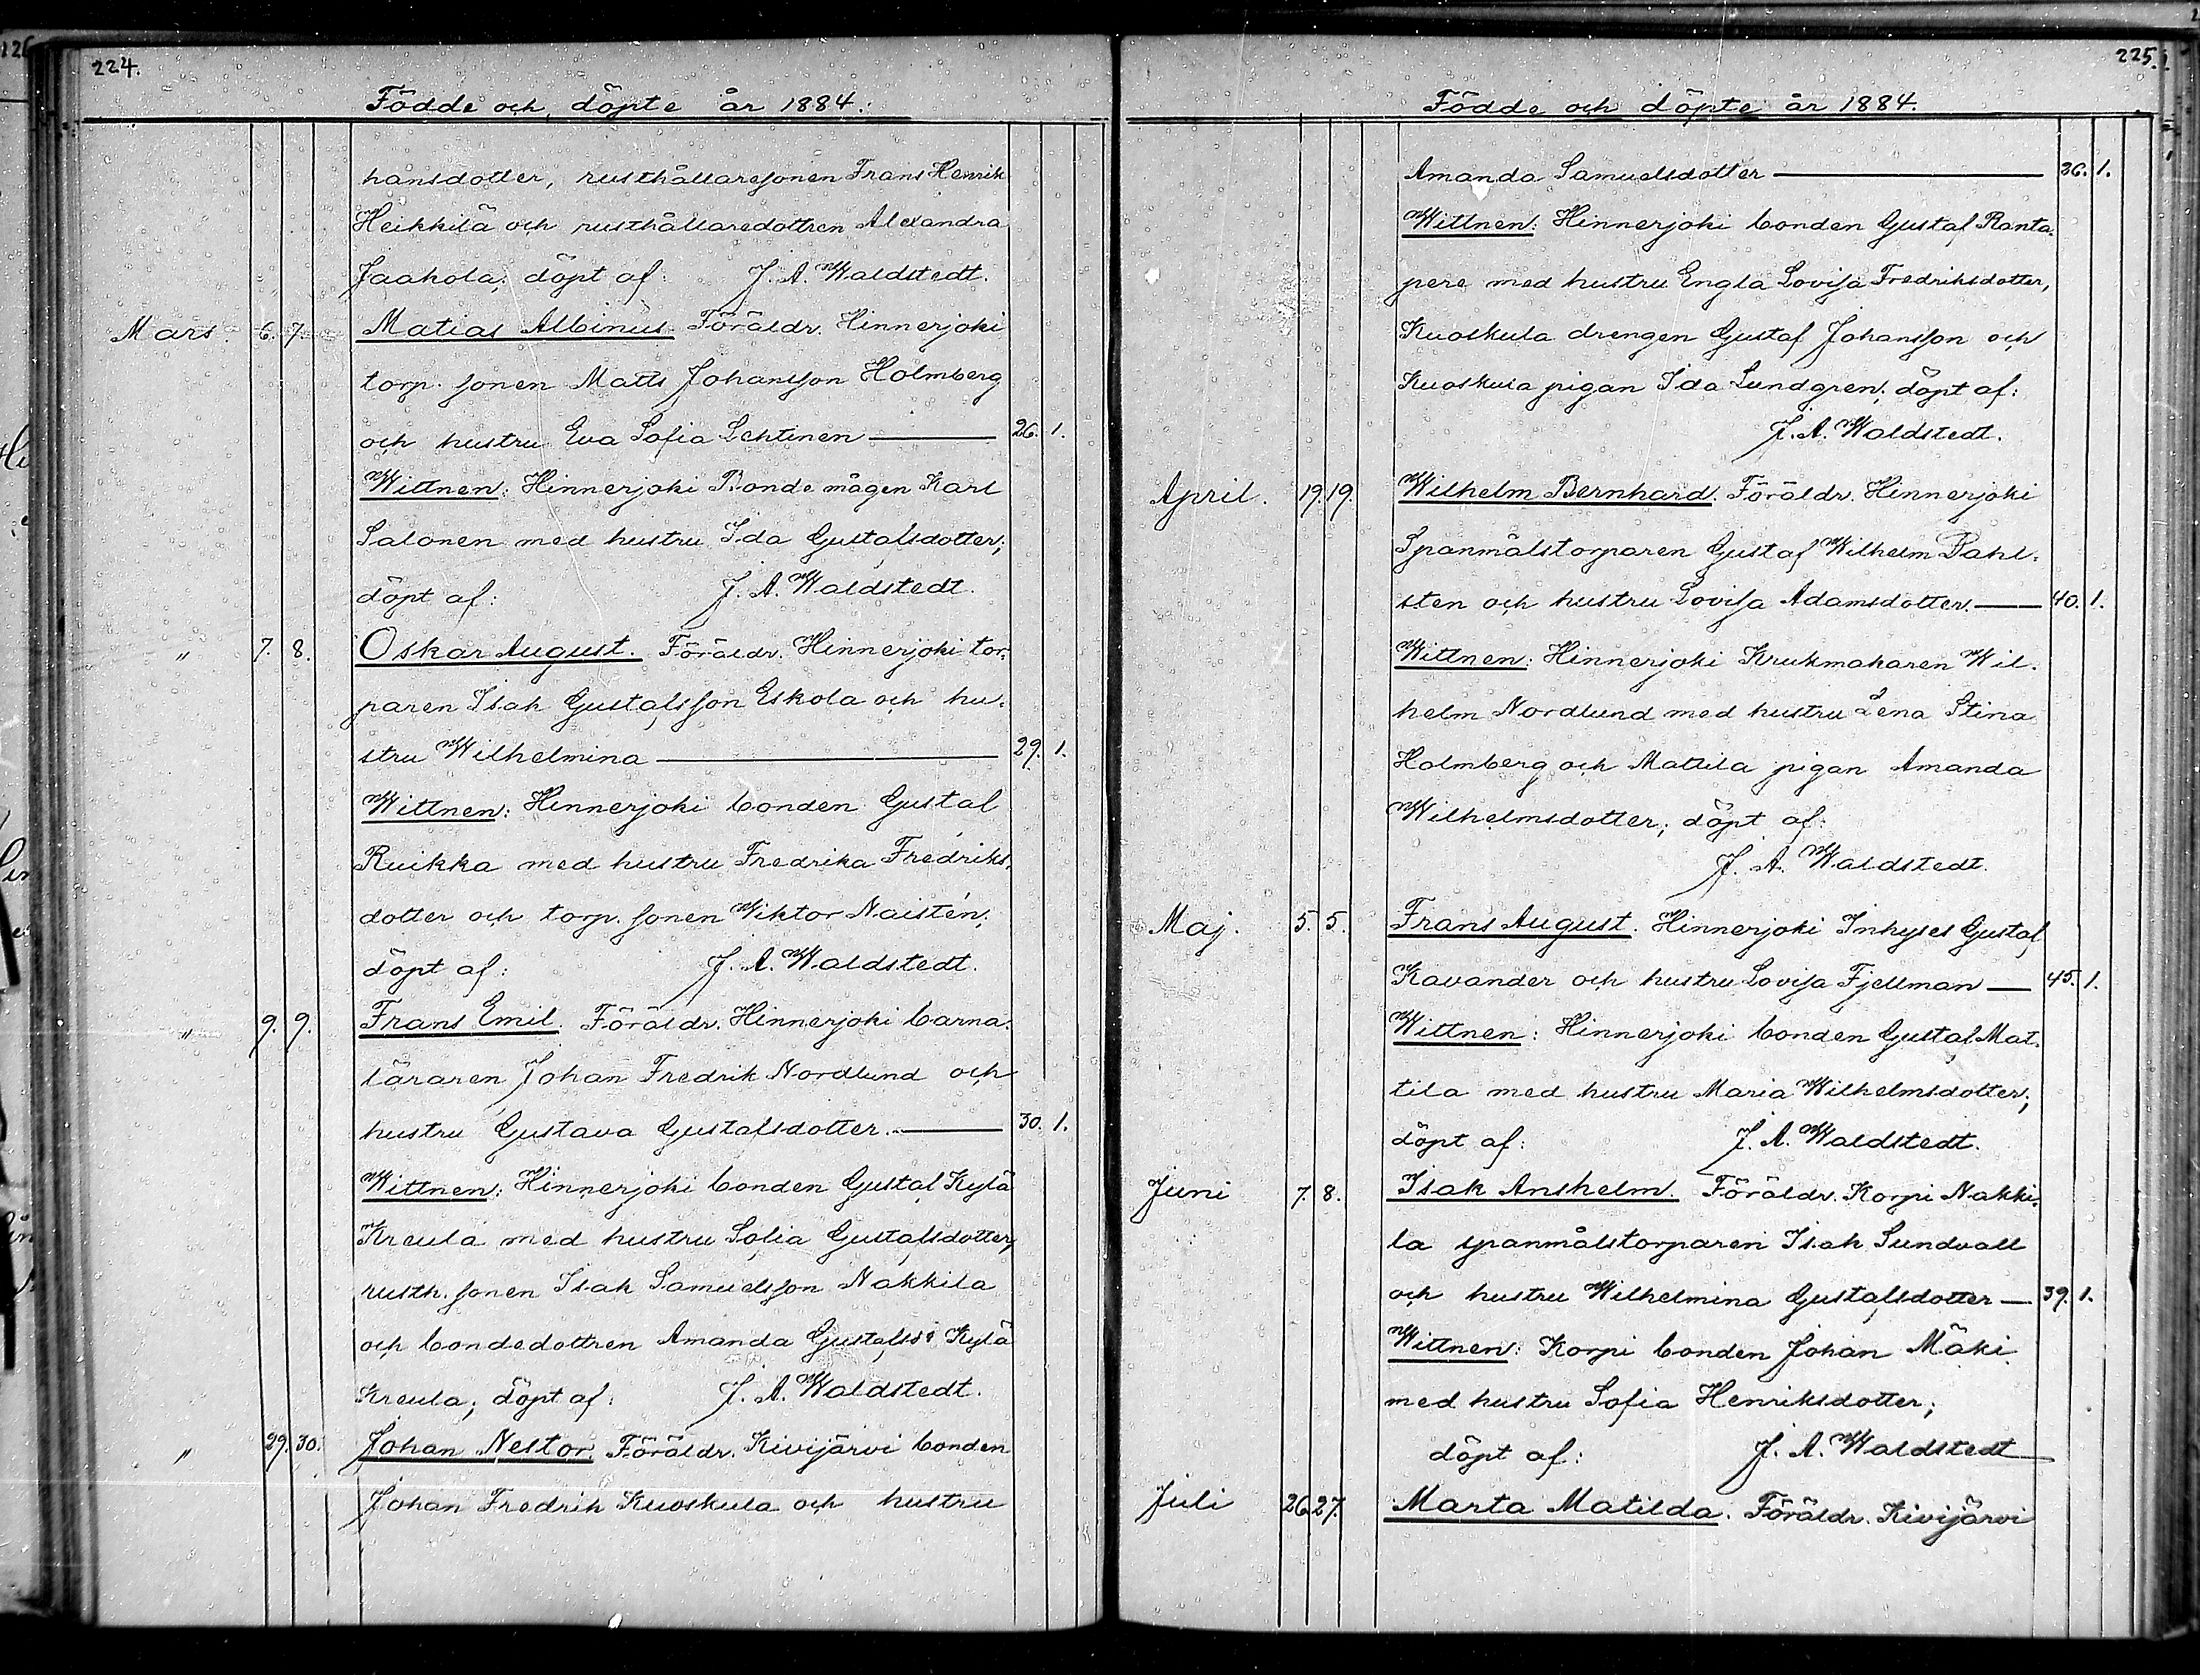 224.
Födde och döpte år 1884.
hansdotter, rusthållaresonen Frans Henrik
Heikkilä och rusthållaredottren Alexandra
Jaakola; döpt af: J. A. Waldstedt.
Mars. 6. 7. Matias Albinus. Föräldr. Hinnerjoki
torp. sonen Matts Johansson Holmberg
och hustru Eva Sofia Lehtinen — 26. 1.
Wittnen: Hinnerjoki Bonde mågen Karl
Salonen med hustru Ida Gustafsdotter;
döpt af: J. A. Waldstedt.
" 7. 8. Oskar August. Föräldr. Hinnerjoki tor-
paren Isak Gustafsson Eskola och hu-
stru Wilhelmina — 29. 1.
Wittnen: Hinnerjoki bonden Gustaf
Ruikka med hustru Fredrika Fredriks-
dotter och torp. sonen Wiktor Naistén;
döpt af: J. A. Waldstedt.
" 9. 9. Frans Emil. Föräldr. Hinnerjoki barna-
läraren Johan Fredrik Nordlund och
hustru Gustava Gustafsdotter. — 30. 1.
Wittnen: Hinnerjoki bonden Gustaf Kylä
Kreula med hustru Sofia Gustafsdotter,
rusth. sonen Isak Samuelsson Nakkila
och bondedottren Amanda Gustafsd: Kylä
Kreula; döpt af: J. A. Waldstedt.
" 29. 30. Johan Nestor. Föräldr. Kivijärvi bonden
Johan Fredrik Kuoskula och hustru
225.
Födde och döpte år 1884.
Amanda Samuelsdotter — 36. 1.
Wittnen: Hinnerjoki bonden Gustaf Ranta-
pere med hustru Engla Lovisa Fredriksdotter,
Kuoskula drengen Gustaf Johansson och
Kuoskula pigan Ida Lundgren; döpt af:
J. A. Waldstedt.
April. 19. 19. Wilhelm Bernhard. Föräldr. Hinnerjoki
Spanmålstorparen Gustaf Wilhelm Dahl-
sten och hustru Lovisa Adamsdotter. — 40. 1.
Wittnen: Hinnerjoki Krukmakaren Wil-
helm Nordlund med hustru Lena Stina
Holmberg och Mattila pigan Amanda
Wilhelmsdotter; döpt af:
J. A. Waldstedt.
Maj. 5. 5. Frans August. Hinnerjoki Inhyses Gustaf
Kavander och hustru Lovisa Fjellman — 45. 1.
Wittnen: Hinnerjoki bonden Gustaf Mat-
tila med hustru Maria Wilhelmsdotter;
döpt af: J. A. Waldstedt.
Juni 7. 8. Isak Anshelm. Föräldr. Korpi Nakki-
la spanmålstorparen Isak Sundvall
och hustru Wilhelmina Gustafsdotter — 39. 1.
Wittnen: Korpi bonden Johan Mäki
med hustru Sofia Henriksdotter;
döpt af: J. A. Waldstedt
Juli 26. 27. Marta Matilda. Föräldr. Kivijärvi